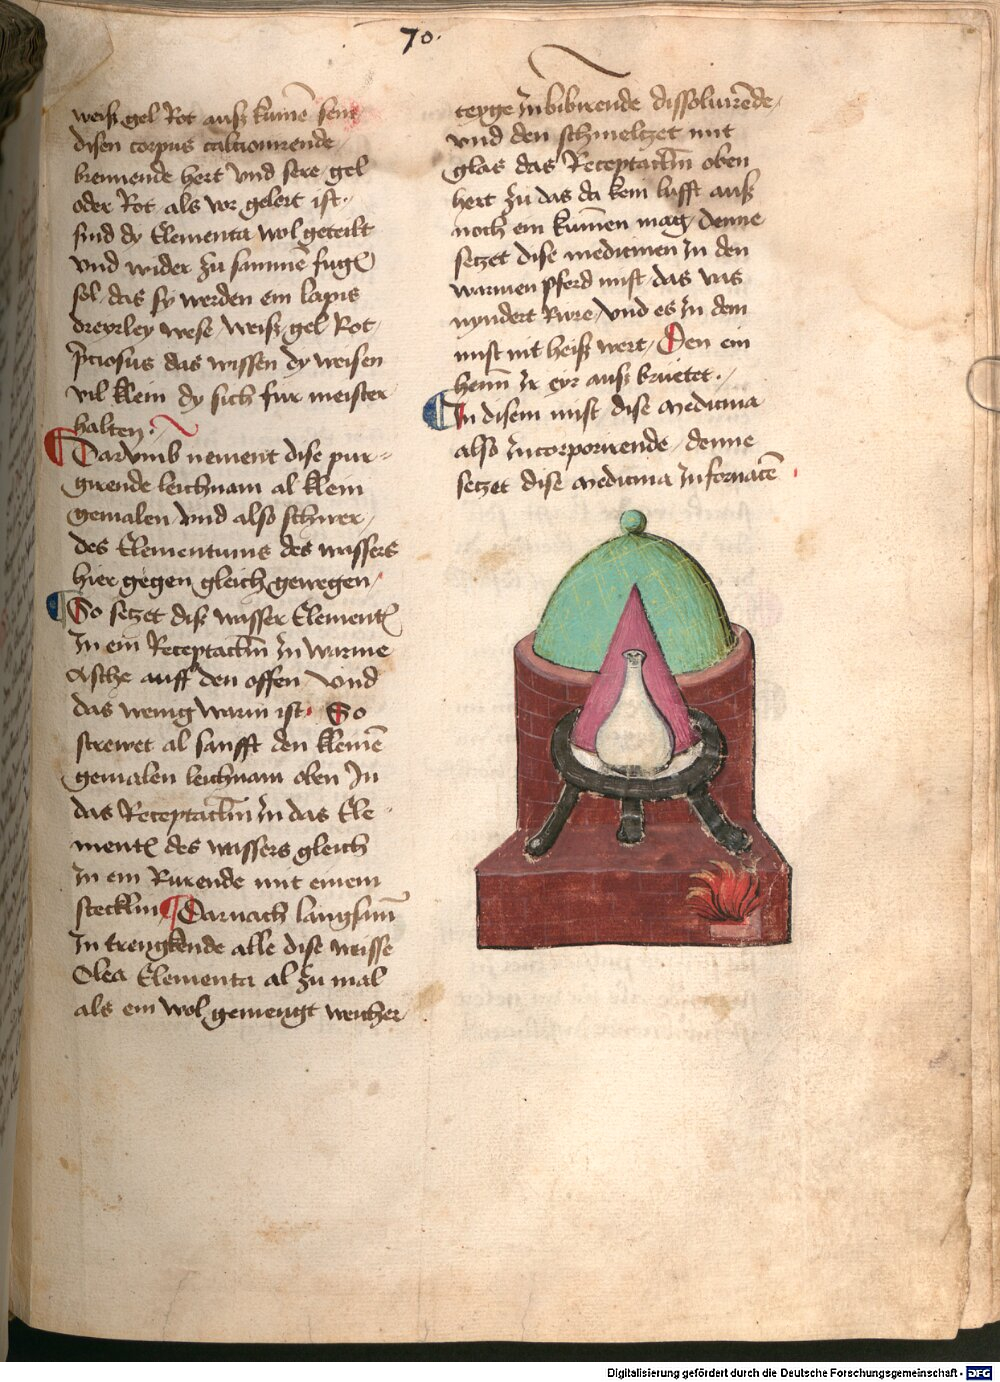 70.
weiß gel Rot auß kumē sent
disen corpus calcionirende
brennende hert Vnd sere gel
oder Rot als vor gelert ist.
sind dy Elementa wol geteilt
Vnd wider zu sammē fugē
sol das sy werden ein lapis
dreyrley wese weiß gel Rot
p̄ciosus das wissen dy weisen
vil klein dy sich fur meister
halten.
Darvmb nement dise pur-
girende leichnam al klein
gemalen vnd also schwer
des Elementums des wassers
hier gegen gleich gewegen
So seczet diß wasser Element
In ein Receptaclm̄ In warme
Asche auff den offen Vnd
das wenig warm ist. So
strewet al sanfft den kleinē
gemalen leichnam oben In
das Receptaclm̄ In das Ele
ment des wassers gleich
In ein Rurende mit einem
stecklin Darnach langsam
In trengkende alle dise weisse
Olea Elementa al zu mal
als ein wol gemengt weicher
teyge Inbibirende dissoluirēde
vnd den schmelczet mit
glas das Receptaclm̄ oben
hert zu das da kein lufft auß
noch ein kumen mag denne
seczet dise medicinen In den
warmen pferd mist das vas
nyndert Rure vnd es In dem
mist nit heiß wert Den ein
henn Ir eyr auß bruetet.
In disem mist dise medicina
also Incorporirende denne
seczet dise medicina In fornacē
Digitalisierung gefördert durch die Deutsche Forschungsgemeinschaft - DFG